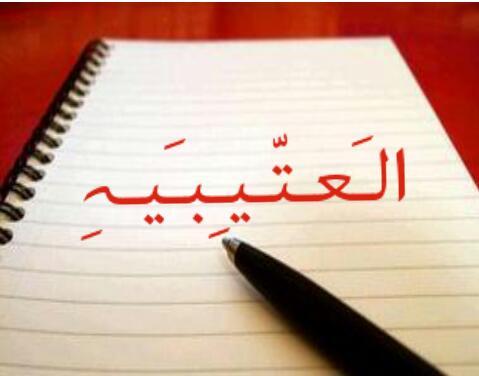 الَعتّيبِيَہِ